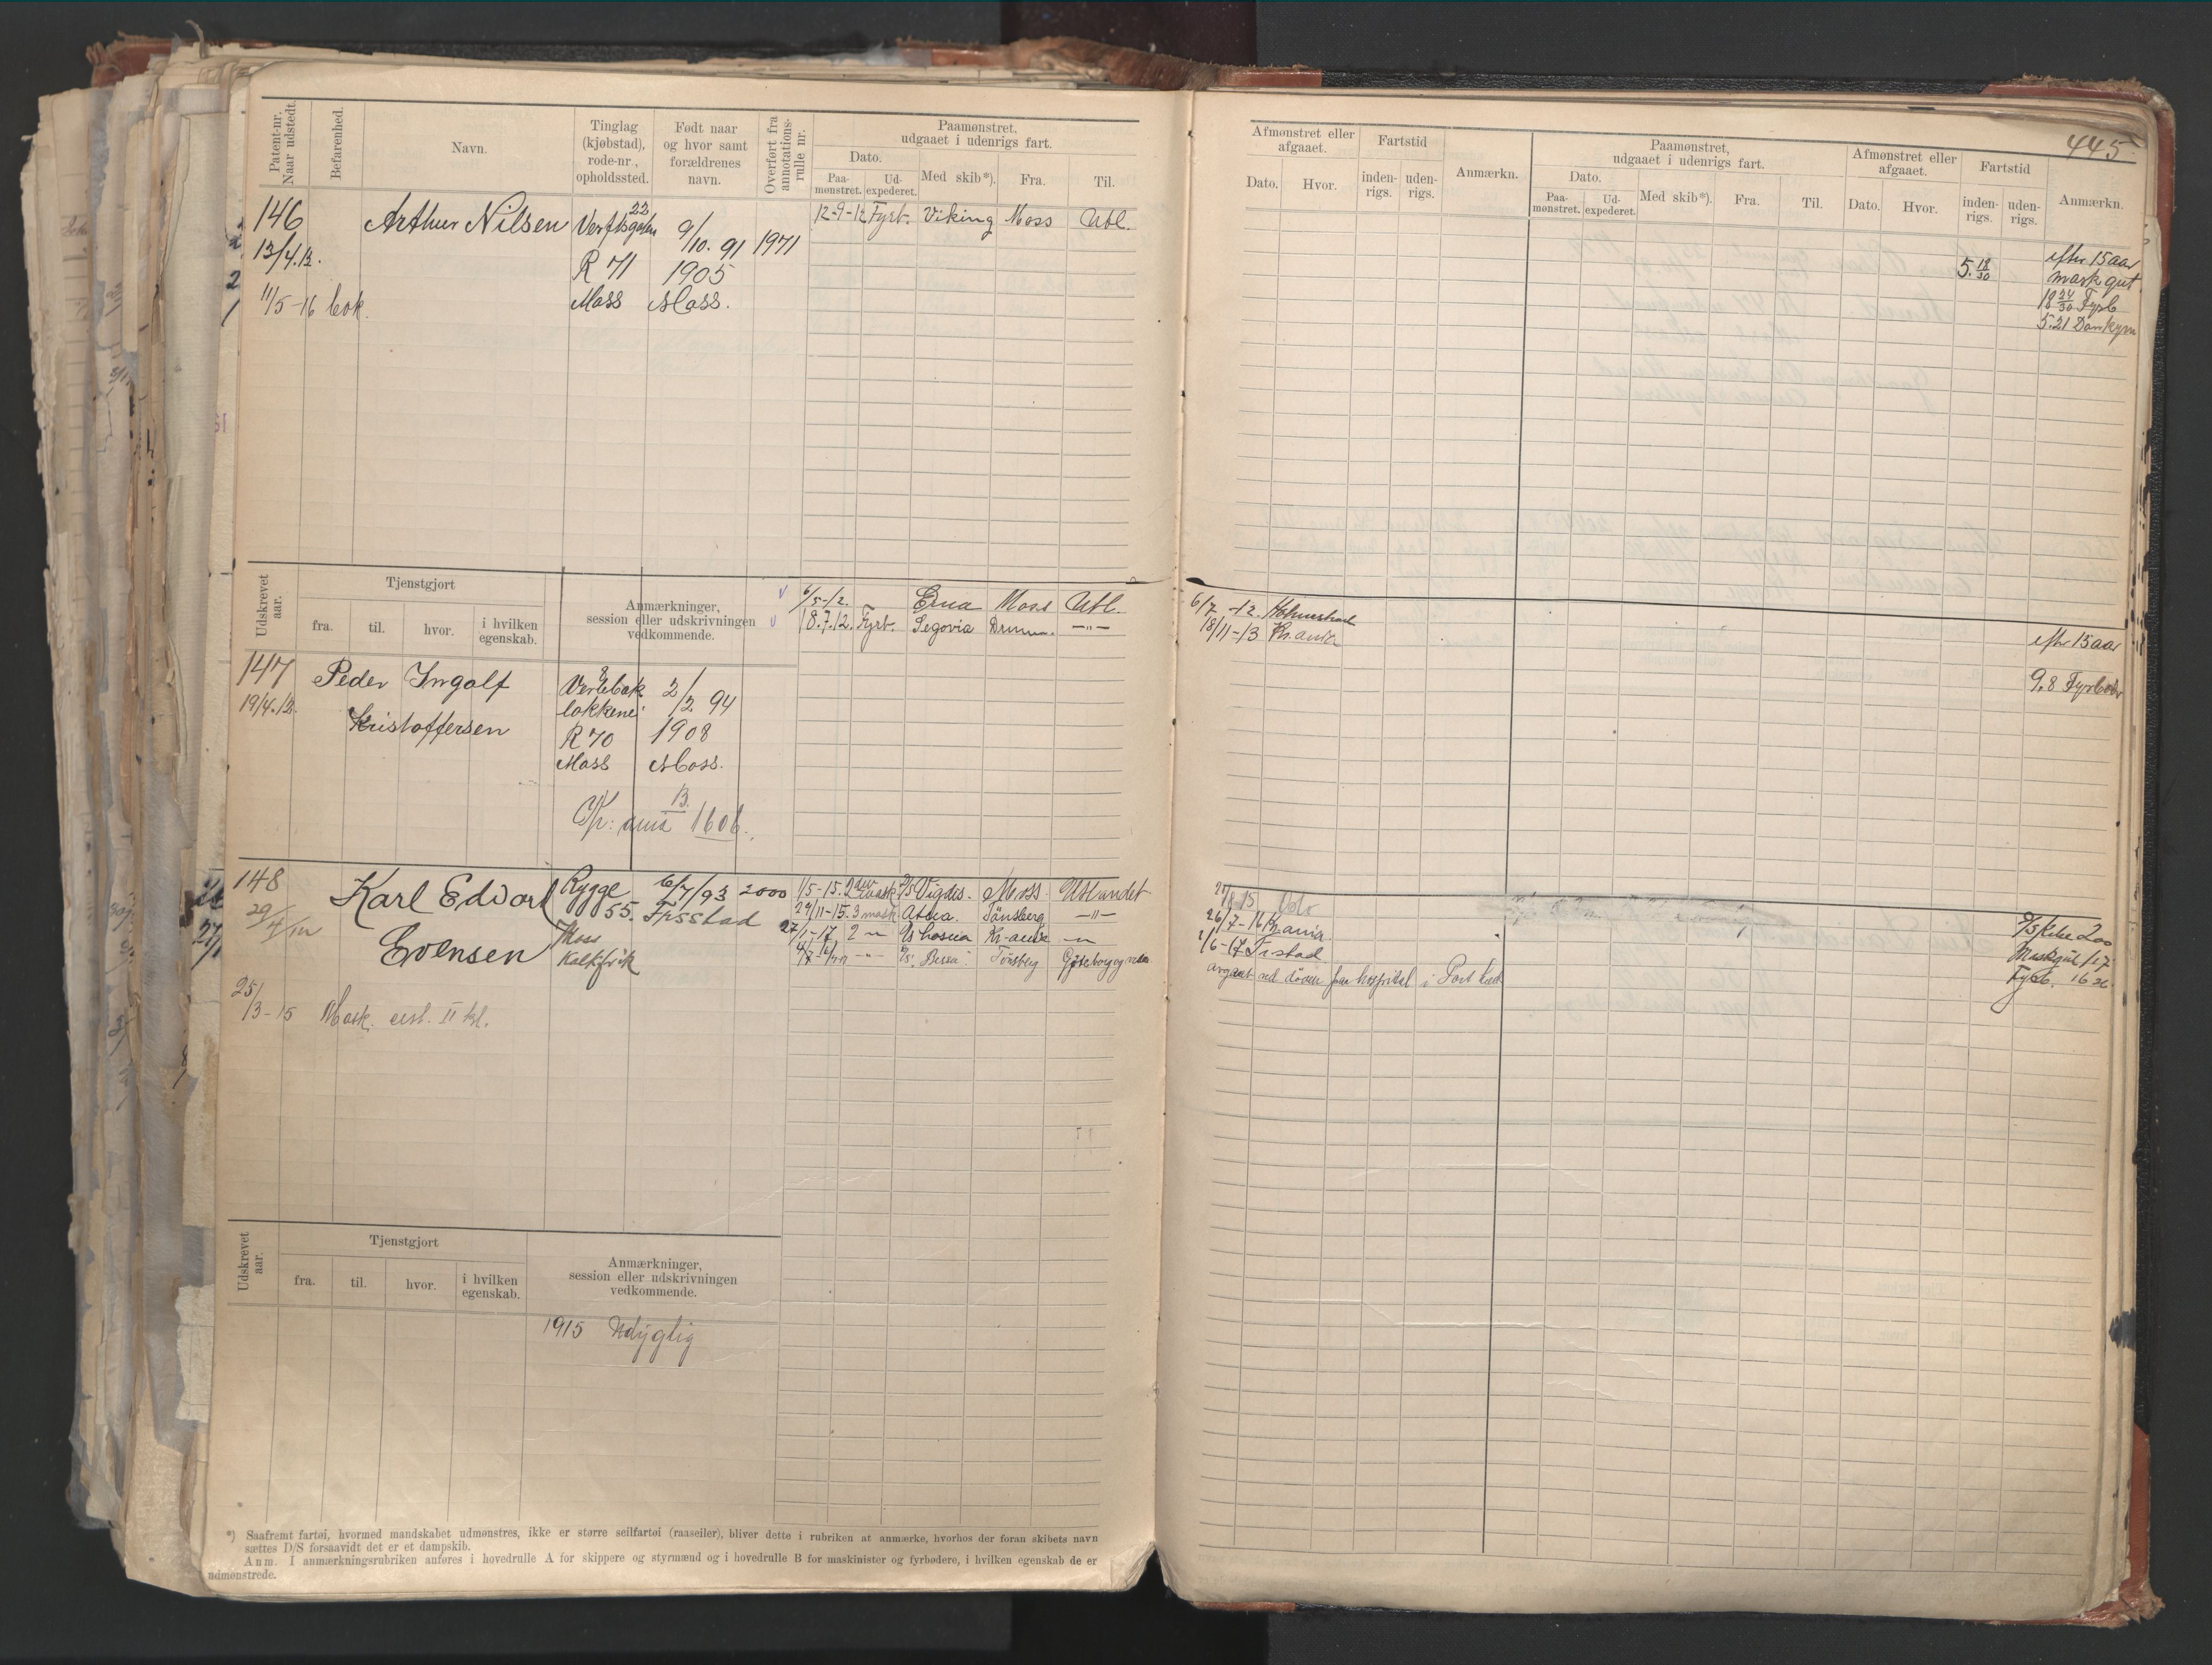 445
Patent-nr. Naar udstedt.
Befarenhed.
Navn.
Tinglag (kjøbstad), rode-nr., opholdssted.
Født naar og hvor samt forældrenes navn.
Overført fra annotations-rulle nr.
Paamønstret, udgaaet i udenrigs fart.
Dato.
Paa-mønstret.
Ud-expederet.
Med skib*).
Fra.
Til.
Afmønstret eller afgaaet.
Dato.
Hvor.
Fartstid
inden-rigs.
uden-rigs.
Anmærkn.
Paamønstret, udgaaet i udenrigs fart.
Dato.
Paa-mønstret.
Ud-expederet.
Med skib*).
Fra.
Til.
Afmønstret eller afgaaet.
Dato.
Hvor.
Fartstid
inden-rigs.
uden-rigs.
Anmærkn.
146 Arthur Nilsen Verftsgaten 22 9/10. 91 1971 12-9-12 Fyrb. Viking Moss Utl.
13/4.12. R 71 1905
11/5-16 bok. Moss Moss.
5.18/30
efter 15 aar
mask gut
18 24/30 Fyrb
5.21 Donkym
Udskrevet aar.
Tjenstgjort
fra.
til.
hvor.
i hvilken egenskab.
Anmærkninger, session eller udskrivningen vedkommende.
6/5-12. Erna Moss Utl. 6/7 -12. Holmestrand
18.7.12. Fyrb. Segovia Dramm. -"- 18/11-13 Kr.ania
efter 15 aar
9.8 Fyrbøder
147 Peder Ingolf
19/4.12. Kristoffersen
Verlebak 9
løkkene
R 70
Moss
2/2. 94
1908
Moss.
Kr: ania 13. 1606.
148 Karl Edvart Rygge 6/7/93 2000
29/4/12 Evensen 55. Frsstad
Moss
Kalkfrik
25/3-15 Mask. cert. II kl.
1/5-15. 2den mask D/S Vigdis. Moss Utlandet
24/11-15. 3 mask Atna. Tønsberg -"-
27/1-17 2 -"- Kr-ania -"-
D/S Bessa Tønsberg Gøteborg og
27/8 15 Oslo
26/7-16 Kr.ania
2/6-17 Fr.stad
avgaat ved døden paa hospital i Port
D/S 200
Maskgut 17
Fyrb. 16
Udskrevet aar.
Tjenstgjort
fra.
til.
hvor.
i hvilken egenskab.
Anmærkninger, session eller udskrivningen vedkommende.
1915 Udygtig
*) Saafremt fartøi, hvormed mandskabet udmønstres, ikke er større seilfartøi (raaseiler), bliver dette i rubriken at anmærke, hvorhos der foran skibets navn
sættes D/S forsaavidt det er et dampskib.
Anm. I anmærkningsrubriken anføres i hovedrulle A for skippere og styrmænd og i hovedrulle B for maskinister og fyrbødere, i hvilken egenskab de er
udmønstrede.